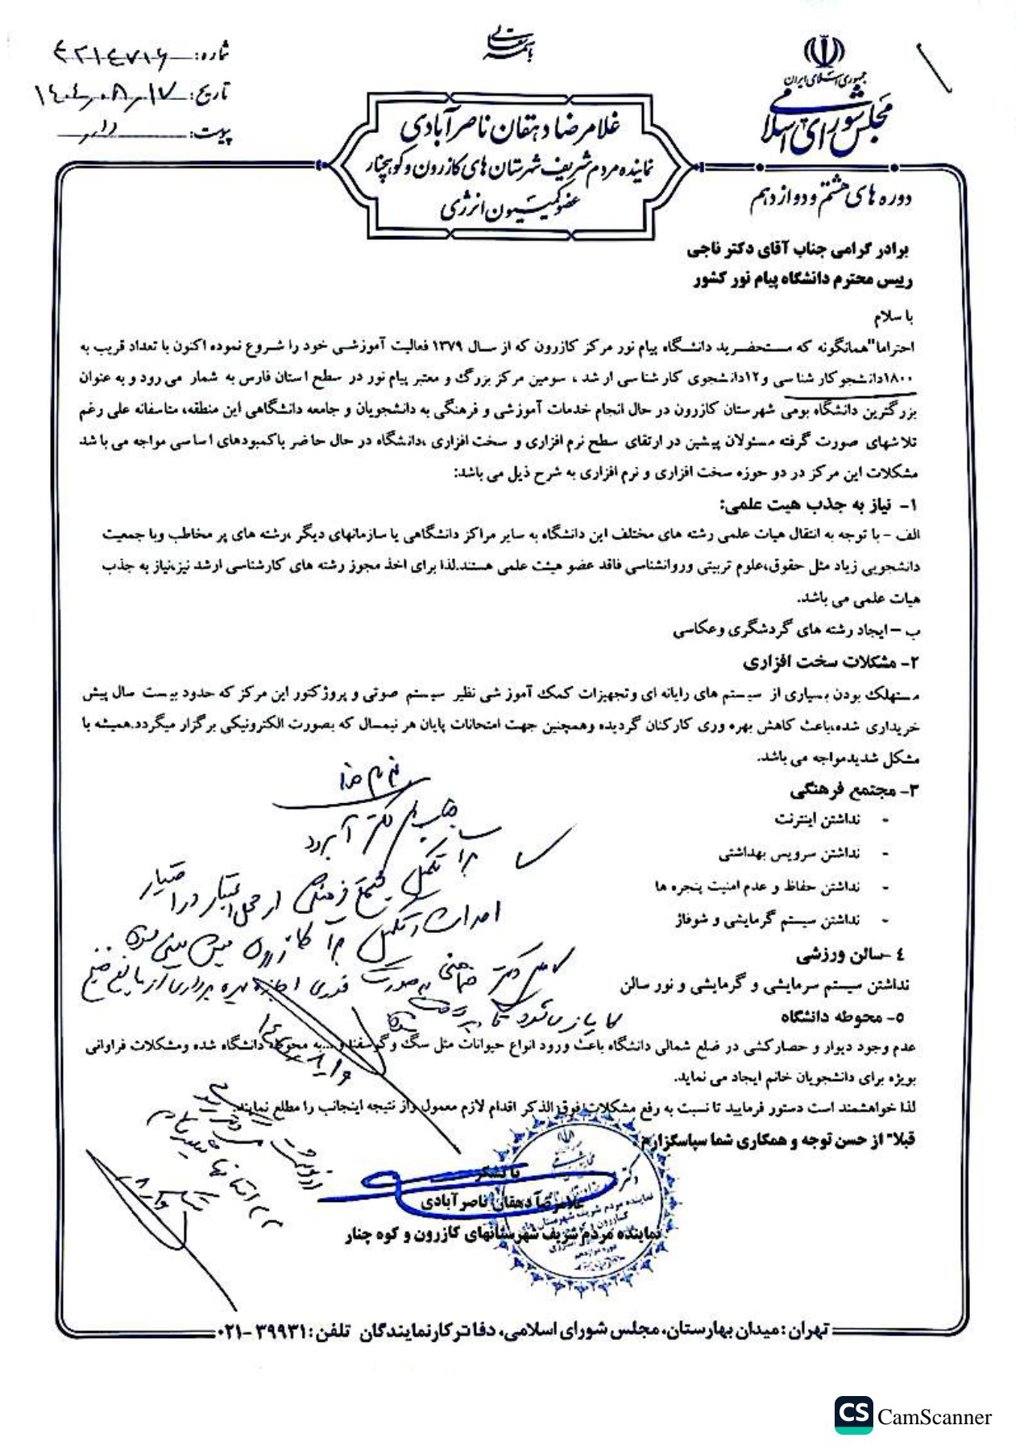 باسمه تعالی
جمهوری اسلامی ایران
مجلس شورای اسلامی
دوره های هشتم و دوازدهم
شماره:
تاریخ: ۱۴۰۴،۰۸،۱۷
پیوست: دارد
غلامرضا دهقان ناصرآبادی
نماینده مردم شریف شهرستان های کازرون و کوهچنار
عضو کمیسیون انرژی
برادر گرامی جناب آقای دکتر ناجی
رییس محترم دانشگاه پیام نور کشور
با سلام
احتراما"همانگونه که مستحضرید دانشگاه پیام نور مرکز کازرون که از سال ۱۳۷۹ فعالیت آموزشی خود را شروع نموده اکنون با تعداد قریب به
۱۸۰۰دانشجو کارشناسی و۱۲دانشجوی کارشناسی ارشد ، سومین مرکز بزرگ و معتبر پیام نور در سطح استان فارس به شمار می رود و به عنوان
بزرگترین دانشگاه بومی شهرستان کازرون در حال انجام خدمات آموزشی و فرهنگی به دانشجویان و جامعه دانشگاهی این منطقه، متاسفانه علی رغم
تلاشهای صورت گرفته مسئولان پیشین در ارتقای سطح نرم افزاری و سخت افزاری ،دانشگاه در حال حاضر باکمبودهای اساسی مواجه می باشد
مشکلات این مرکز در دو حوزه سخت افزاری و نرم افزاری به شرح ذیل می باشد:
۱- نیاز به جذب هیت علمی:
الف - با توجه به انتقال هیات علمی رشته های مختلف این دانشگاه به سایر مراکز دانشگاهی یا سازمانهای دیگر ،رشته های پر مخاطب وبا جمعیت
دانشجویی زیاد مثل حقوق،علوم تربیتی وروانشناسی فاقد عضو هیئت علمی هستند.لذا برای اخذ مجوز رشته های کارشناسی ارشد نیز،نیاز به جذب
هیات علمی می باشد.
ب – ایجاد رشته های گردشگری وعکاسی
۲- مشکلات سخت افزاری
مستهلک بودن بسیاری از سیستم های رایانه ای وتجهیزات کمک آموزشی نظیر سیستم صوتی و پروژکتور این مرکز که حدود بیست سال پیش
خریداری شده،باعث کاهش بهره وری کارکنان گردیده وهمچنین جهت امتحانات پایان هر نیمسال که بصورت الکترونیکی برگزار میگردد.همیشه با
مشکل شدیدمواجه می باشد.
۳- مجتمع فرهنگی
- نداشتن اینترنت
- نداشتن سرویس بهداشتی
- نداشتن حفاظ و عدم امنیت پنجره ها
- نداشتن سیستم گرمایشی و شوفاژ
۴ -سالن ورزشی
نداشتن سیستم سرمایشی و گرمایشی و نور سالن
۵- محوطه دانشگاه
عدم وجود دیوار و حصارکشی در ضلع شمالی دانشگاه باعث ورود انواع حیوانات مثل سگ وگوسفند و...به محوطه دانشگاه شده ومشکلات فراوانی
بویژه برای دانشجویان خانم ایجاد می نماید.
لذا خواهشمند است دستور فرمایید تا نسبت به رفع مشکلات فوق الذکر اقدام لازم معمول واز نتیجه اینجانب را مطلع نمایند.
قبلا" از حسن توجه و همکاری شما سپاسگزارم
با تشکر
غلامرضا دهقان ناصرآبادی
نماینده مردم شریف شهرستانهای کازرون و کوه چنار
تهران : میدان بهارستان، مجلس شورای اسلامی، دفاتر کار نمایندگان تلفن : ۳۹۹۳۱-۰۲۱
CS CamScanner